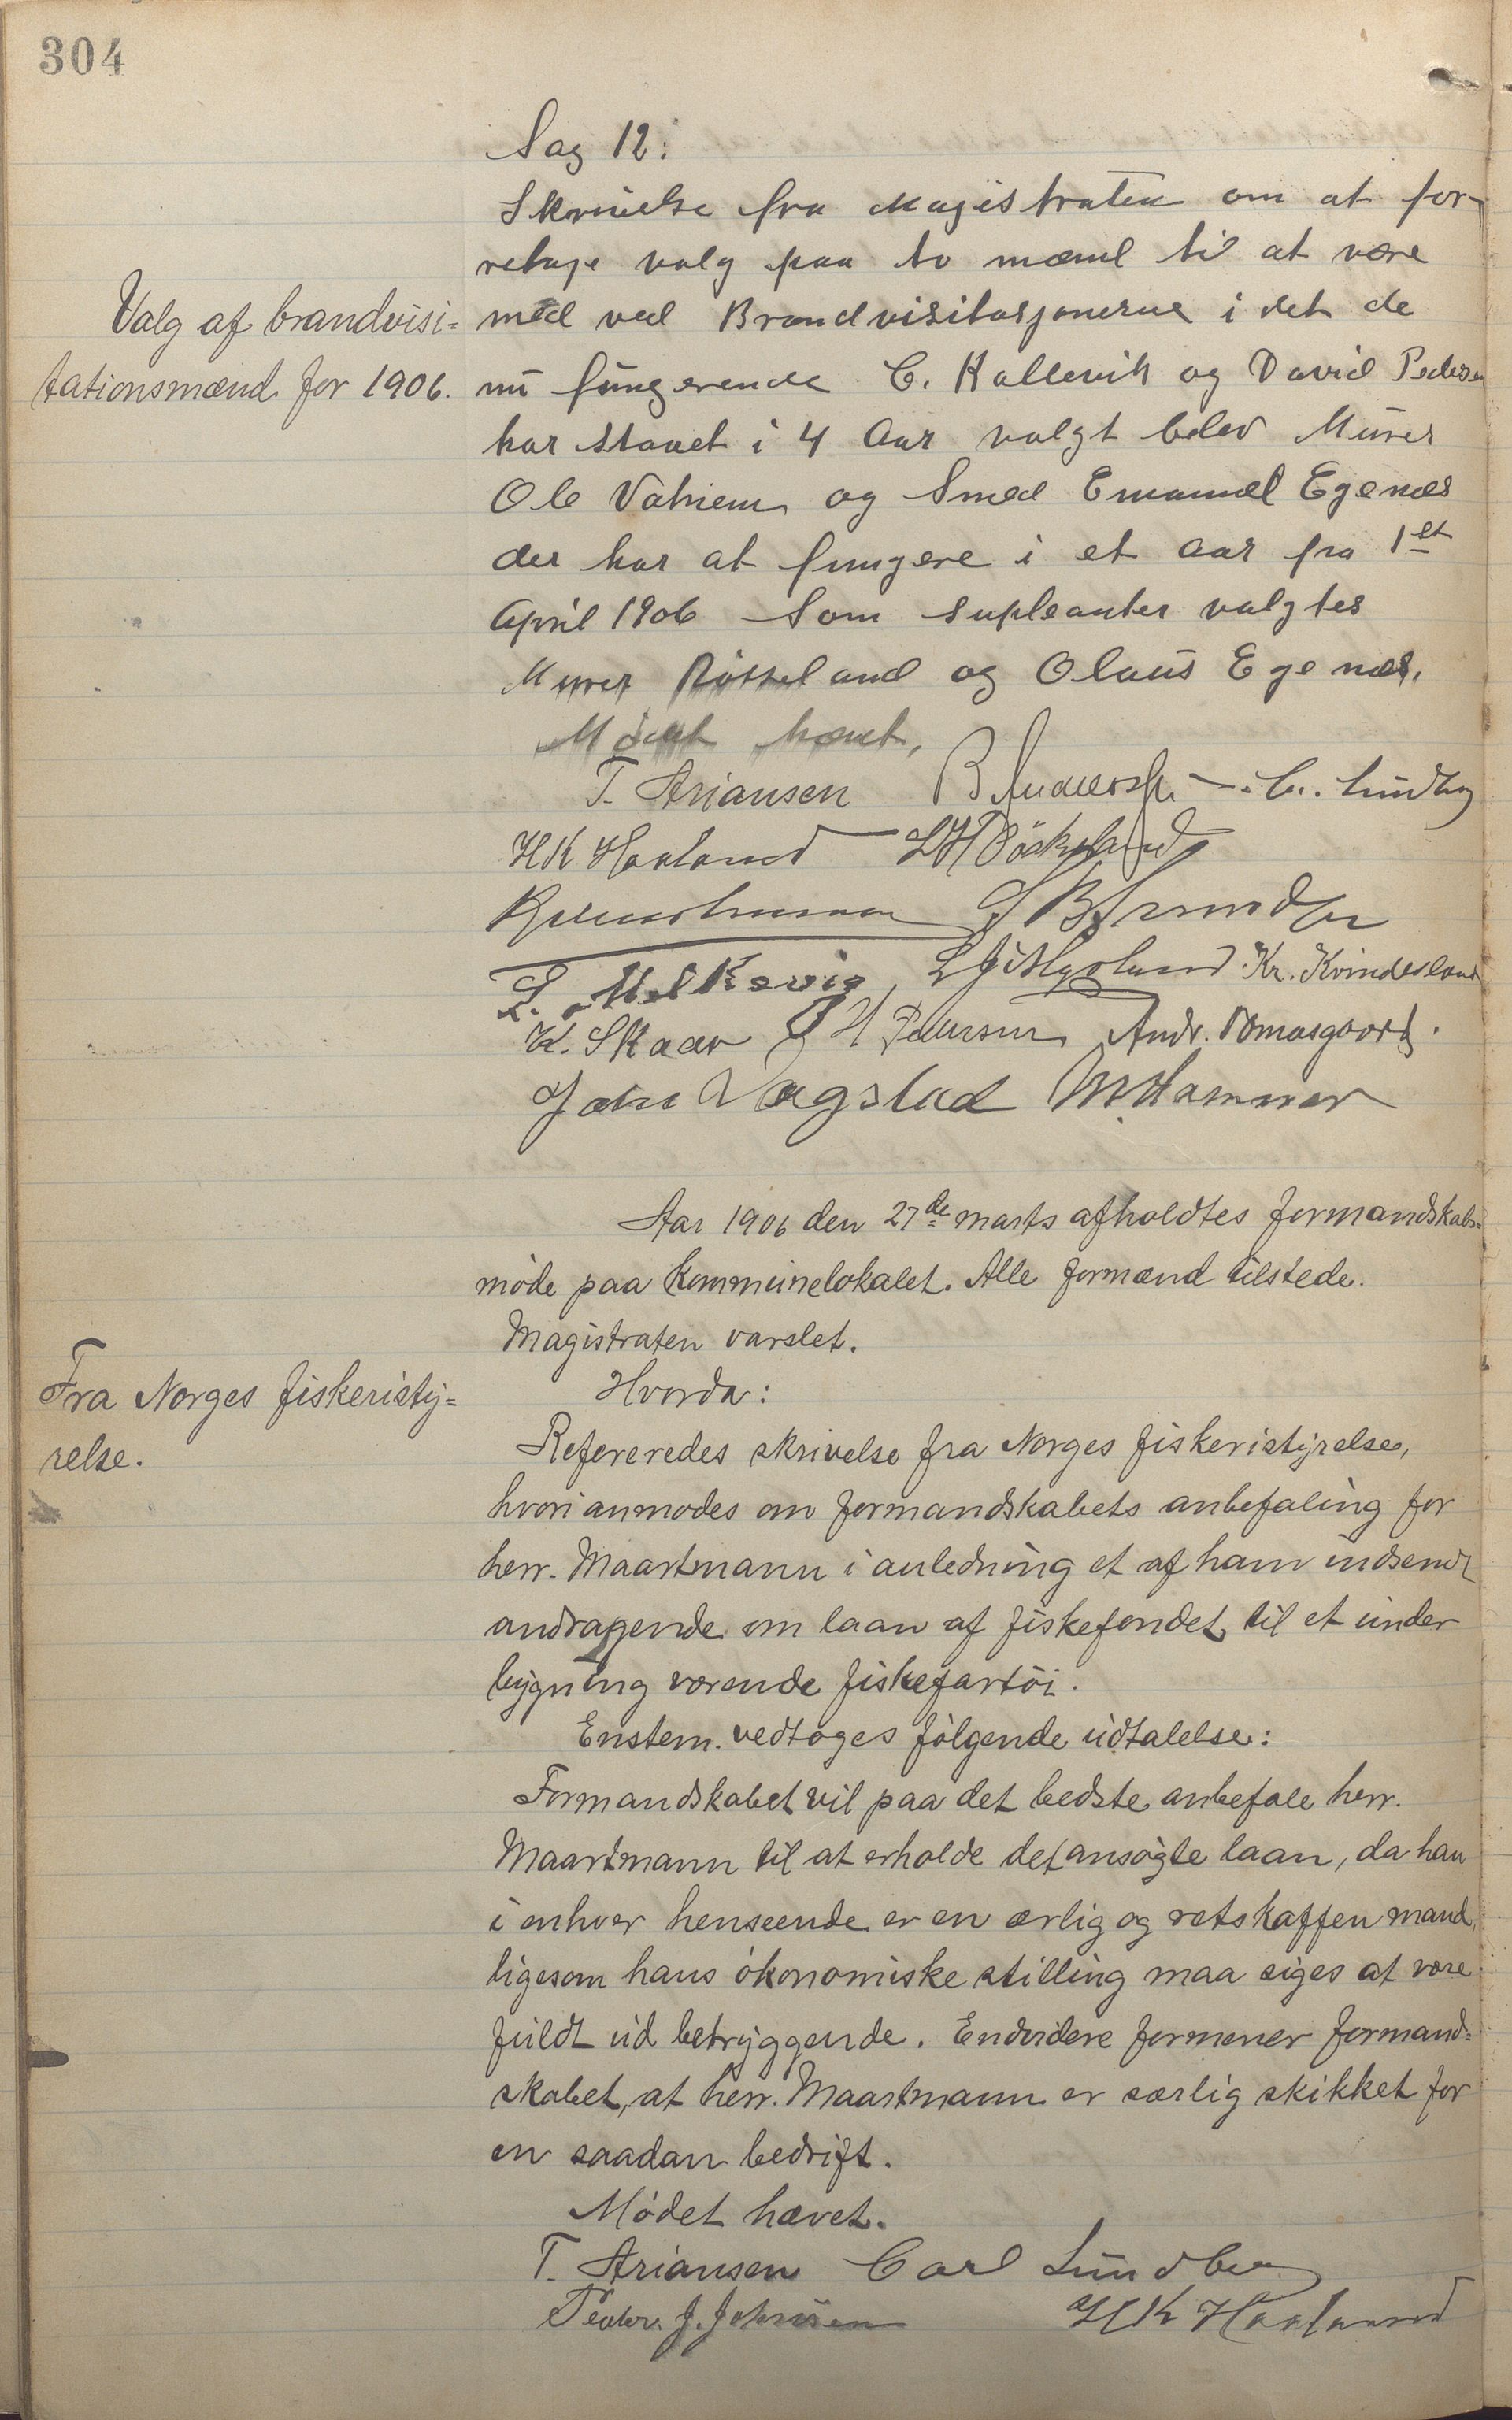 304
Sag 12:
Skrivelse fra Magistraten om at for-
retage valg paa to mænd til at være
Valg af brandvisi=
tationsmænd for 1906.
med ved Brandvisitasjonerne i det de
nu fungerende C. Hallevik og David Pedersen
har staaet i 4 Aar valgt blev Murer
Ole Vatnem og Smed Emanuel Egenæs
der har at fungere i et aar fra 1et
April 1906 Som supleanter valgtes
Murer Røsseland og Olaus Egenæs.
Mødet hævet,
T. Ariansen C. Lundberg
HK Haaland
L. Melkevig Kr. Kvindesland
K. Skaar J H Pedersen Andr. Tomasgaard.
John Vagstad M. Hammer
Aar 1906 den 27de marts afholdtes formandskabs=
møde paa kommunelokalet. Alle formænd tilstede.
Magistraten varslet.
Hvorda:
Fra Norges fiskeristy=
relse.
Refereredes skrivelse fra Norges fiskeristyrelse,
hvori anmodes om formandskabets anbefaling for
herr. Maartmann i anledning et af ham indsendt
andragende om laan af fiskefondet til et under
bygning værende fiskefartøi.
Enstem. vedtoges følgende udtalelse:
Formandskabet vil paa det bedste anbefale herr.
Maartmann til at erholde det ansøgte laan, da han
i enhver henseende er en ærlig og retskaffen mand,
ligesom hans økonomiske stilling maa siges at være
fuldt ud betryggende. Endvidere formener formand=
skabet, at herr. Maartmann er særlig skikket for
en saadan bedrift.
Mødet hævet.
T. Ariansen Carl Lundberg
Peder J. Johnsen HK Haaland